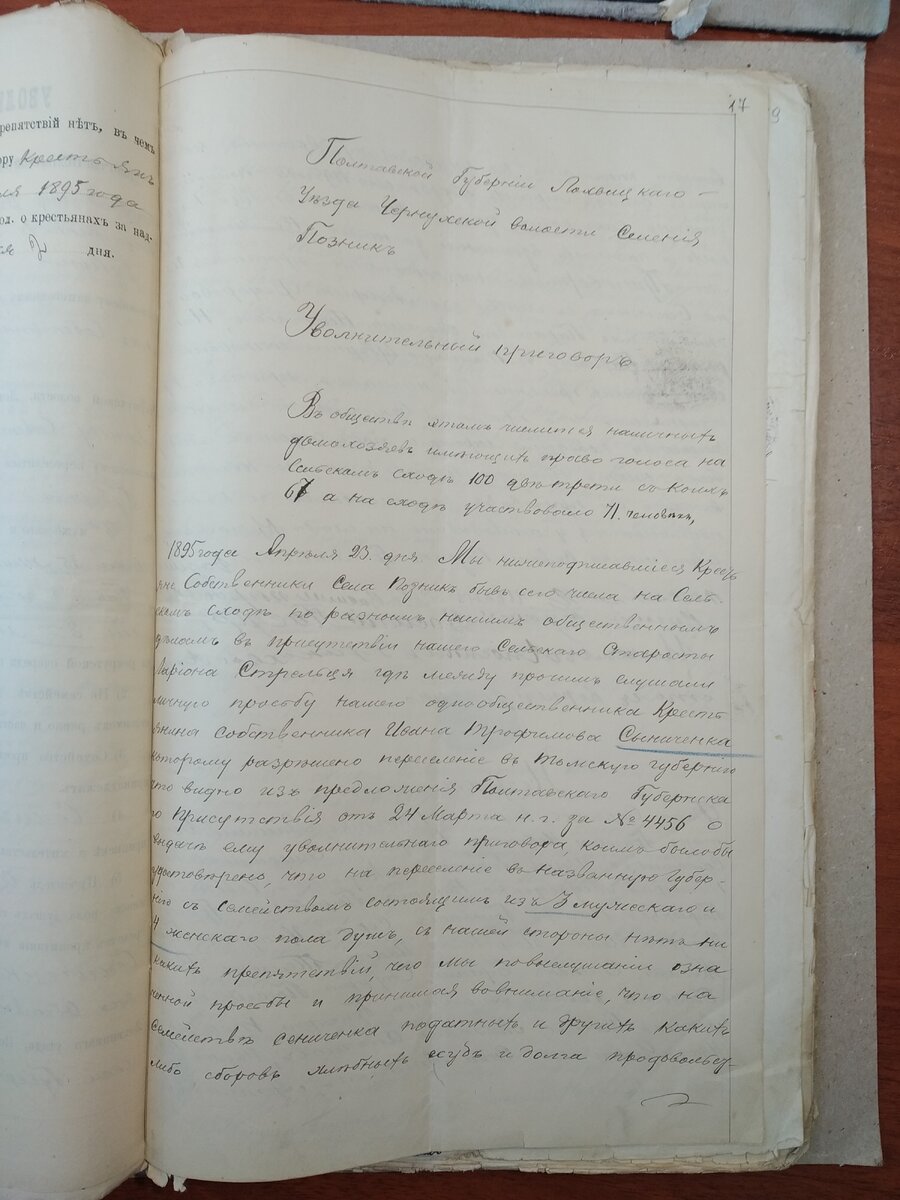 репятствій нѣтъ, въ чемъ
ору Крестьянъ
ля 1895 года
ол. о крестьянахъ за над-
дня.
17
9
Полтавской Губерніи Лохвицкаго
Уѣзда Чернухской волости Селенія
Позникъ
Уволнительный приговоръ
Въ обществѣ этомъ числится наличныхъ
домохозяевъ имѣющихъ право голоса на
Сельскомъ сходѣ 100 двѣ трети съ коихъ
67 а на сходѣ участвовало 71. человѣкъ,
1895 года Апрѣля 23. дня. Мы нижеподписавшіеся Кресть
яне Собственники Села Позникъ бывъ сего числа на Сель-
скомъ Сходѣ по разнымъ нашимъ общественнымъ
дѣламъ въ присутствіи нашего Сельскаго Старосты
Ларіона Стрельця гдѣ между прочимъ слушали
личную просьбу нашего однообщественника Кресть
янина собственника Ивана Трофимова Сыниченка
которому разрѣшено переселеніе въ Томскую губернію
что видно изъ предложенія Полтавскаго Губернска
го Присутствія отъ 24 Марта н. г. за № 4456 о
выдачѣ ему уволнительнаго приговора, коимъ было бы
удостовѣрено, что на переселеніе въ названную Губер-
нію съ семействомъ состоящимъ изъ 3 мужескаго и
4 женскаго пола душъ, съ нашей стороны нѣтъ ни
какихъ препятствій, чего мы повыслушаніи озна
ченной просьбы и принимая вовниманіе, что на
Семействѣ Сениченка податныхъ и другихъ какихъ
либо сборовъ и долга продовольст-